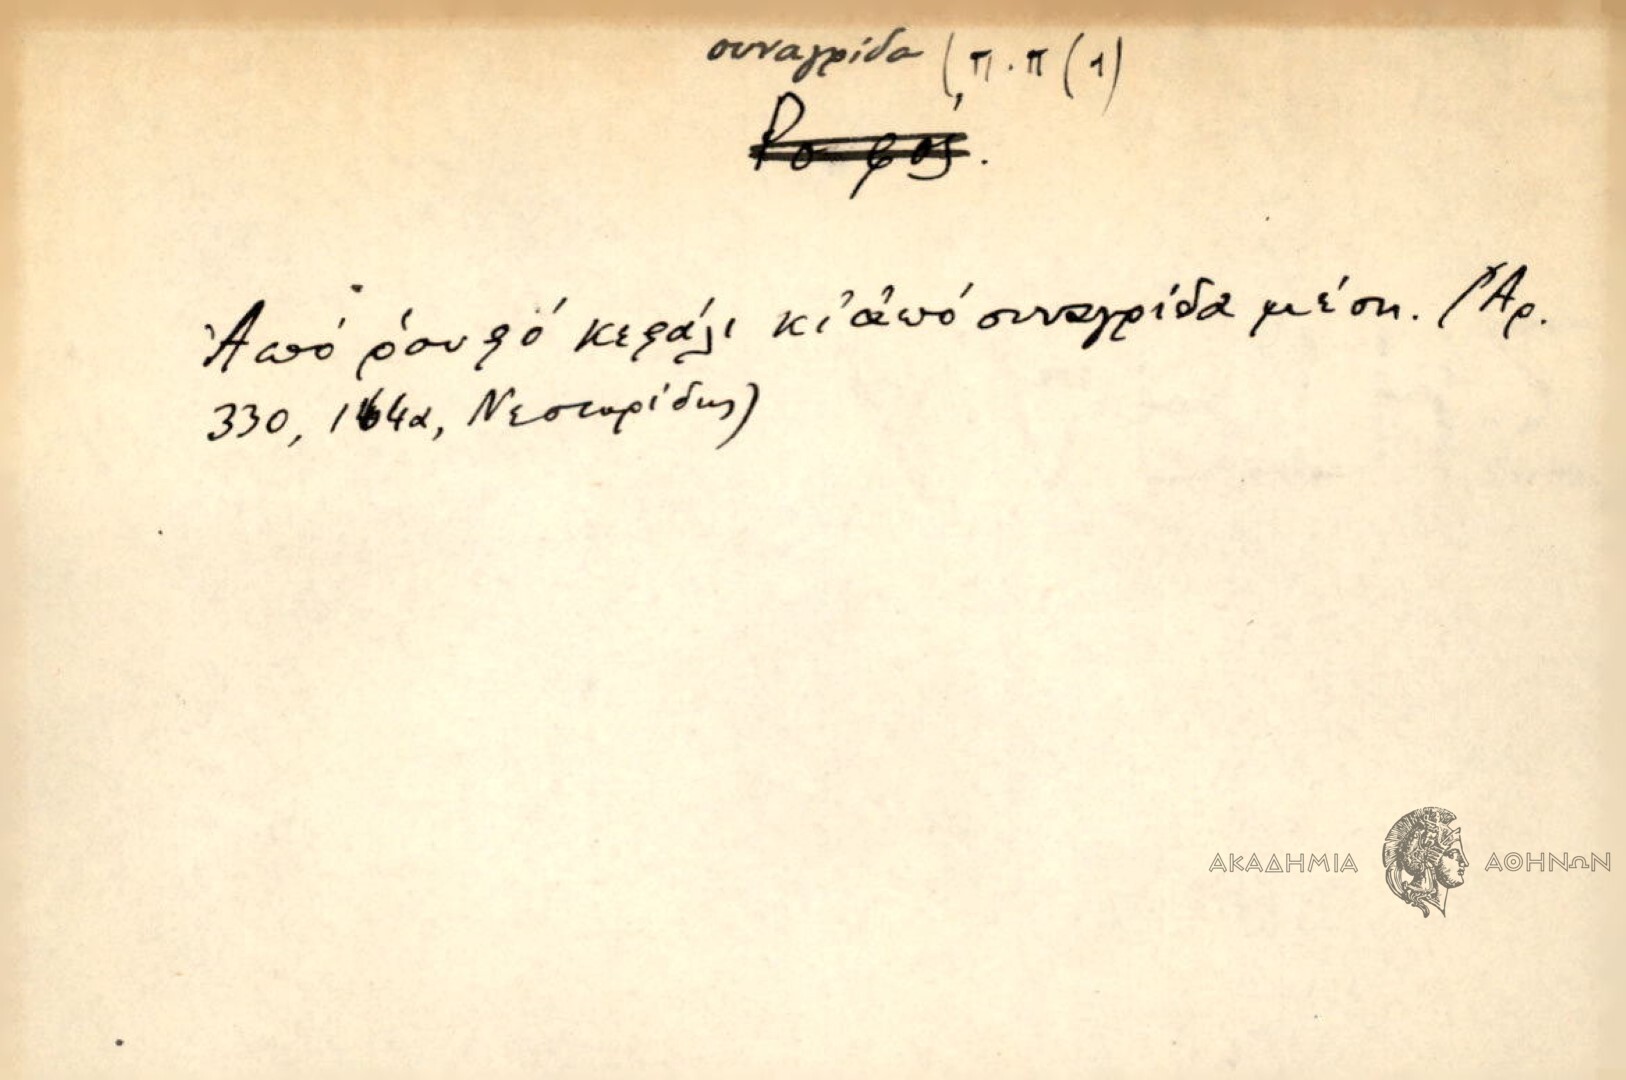 συναγρίδα (π.π (1)
Ροφός.
Ἀπό ρουφό κεφάλι κι ἀπό συναγρίδα μέση. (Ἀρ.
330, 164α, Νεστορίδης)
ΑΚΑΔΗΜΙΑ ΑΘΗΝΩΝ